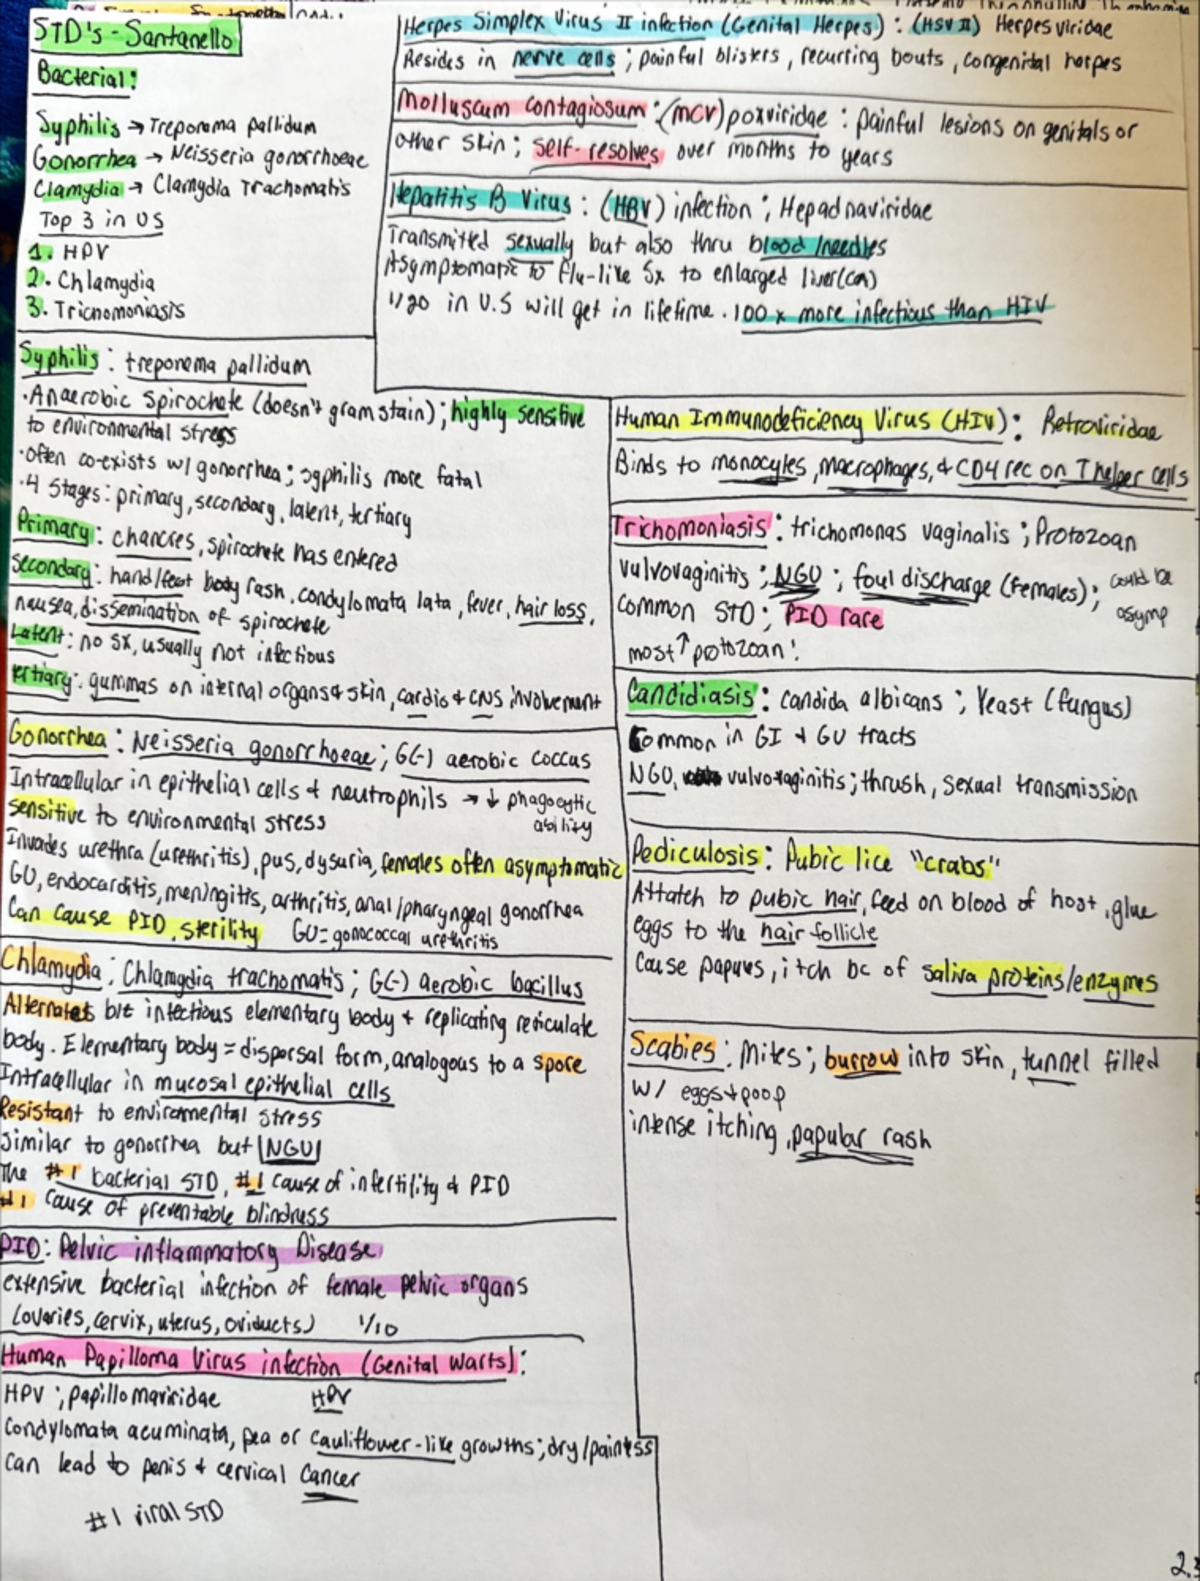 STD's - Santanello
Bacterial:
Syphilis → Treponoma pallidum
Gonorrhea → Neisseria gonorrhoeae
Clamydia → Clamydia Trachomatis
Top 3 in US
1. HPV
2. Chlamydia
3. Tricnomoniasis
Syphilis: treponema pallidum
·Anaerobic spirochete (doesn't gram stain); highly sensitive
to environmental stress
·Often co-exists w/ gonorrhea; syphilis more fatal
·4 Stages: primary, secondary, latent, tertiary
Primary: chancres, spirochete has entered
Secondary: hand/feet body rash, condylomata lata, fever, hair loss,
nausea, dissemination of spirochete
Latent: no sx, usually not infectious
tertiary: gummas on internal organs & skin, cardio & CNS involvement
Gonorrhea: Neisseria gonorrhoeae; G(-) aerobic coccus
Intracellular in epithelial cells & neutrophils → ↓ phagocytic
ability
sensitive to environmental stress
Invades urethra (urethritis), pus, dysuria, females often asymptomatic
GU, endocarditis, meningitis, arthritis, anal/pharyngeal gonorrhea
Can cause PID, sterility GU= gonococcal urethritis
Chlamydia: Chlamydia trachomatis; G(-) aerobic bacillus
Alternates bit infectious elementary body & replicating reticulate
body. Elementary body = dispersal form, analogous to a spore
Intracellular in mucosal epithelial cells
Resistant to environmental stress
Similar to gonorrhea but NGU
The #1 bacterial STD, #1 cause of infertility & PID
#1 cause of preventable blindness
PID: Pelvic inflammatory Disease
extensive bacterial infection of female pelvic organs
(ovaries, cervix, uterus, oviducts) 1/10
Human Papilloma Virus infection (Genital Warts):
HPV; papillomaviridae HPV
Condylomata acuminata, pea or cauliflower-like growths; dry/painless
can lead to penis & cervical cancer
#1 viral STD
Herpes Simplex Virus II infection (Genital Herpes): (HSV II) Herpesviridae
Resides in nerve cells; painful blisters, recurring bouts, congenital herpes
Molluscum contagiosum: (MCV) poxviridae: painful lesions on genitals or
other skin; self-resolves over months to years
Hepatitis B Virus: (HBV) infection; Hepadnaviridae
Transmitted sexually but also thru blood/needles
Asymptomatic to flu-like sx to enlarged liver (ca)
1/20 in U.S will get in lifetime. 100x more infectious than HIV
Human Immunodeficiency Virus (HIV): Retroviridae
Binds to monocytes, macrophages, & CD4 rec on T helper cells
Trichomoniasis: trichomonas vaginalis; Protozoan
vulvovaginitis; NGU; foul discharge (females); could be
asymp
common STD; PID rare
most ↑ protozoan!
Candidiasis: candida albicans; Yeast (fungus)
Common in GI & GU tracts
NGU, vulvovaginitis; thrush, sexual transmission
Pediculosis: Pubic lice "crabs"
Attatch to pubic hair, feed on blood of host, glue
eggs to the hair follicle
Cause papuus, itch bc of saliva proteins/enzymes
Scabies: Mites; burrow into skin, tunnel filled
w/ eggs + poop
intense itching, papular rash